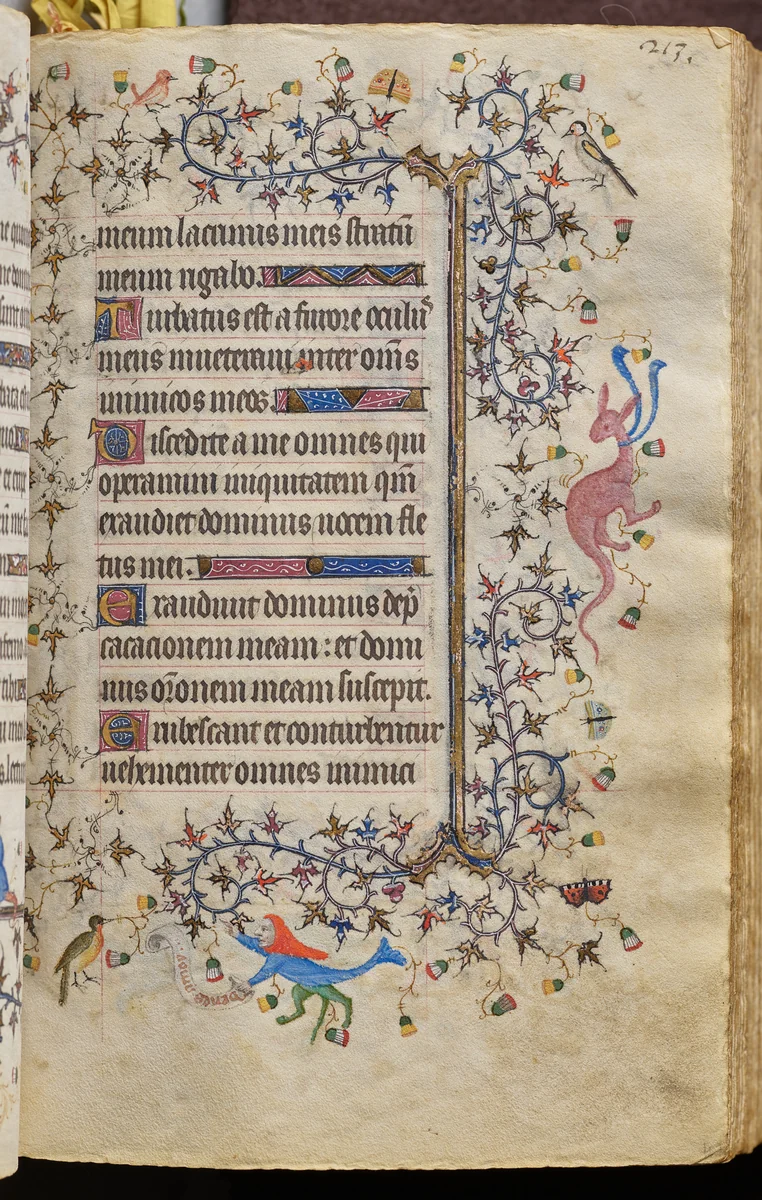 213.
meum lacrimis meis stratū
meum rigabo.
Turbatus est a furore oculꝰ
meus inueteraui inter om̄s
inimicos meos.
Discedite a me omnes qui
operamini iniquitatem qm̄
exaudiet dominus uocem fle
tus mei.
Exaudiuit dominus dep̄
cacionem meam : et domi
nus or̄onem meam suscepit.
Erubescant et conturbentur
uehementer omnes inimici
amor